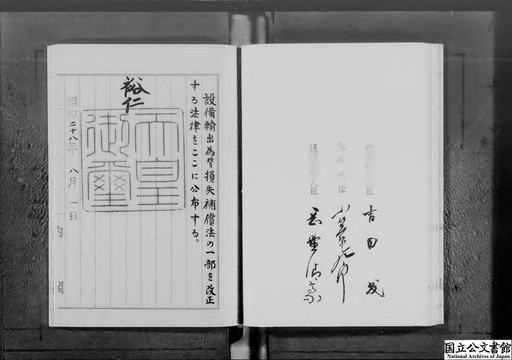 設備輸出為替損失補償法の一部を改正
する法律をここに公布する。
裕仁
天皇
御璽
昭和二十八年 八月 一日
内閣
内閣総理大臣
吉田茂
大蔵大臣
小笠原
通商産業大臣
国立公文書館
National Archives of Japan